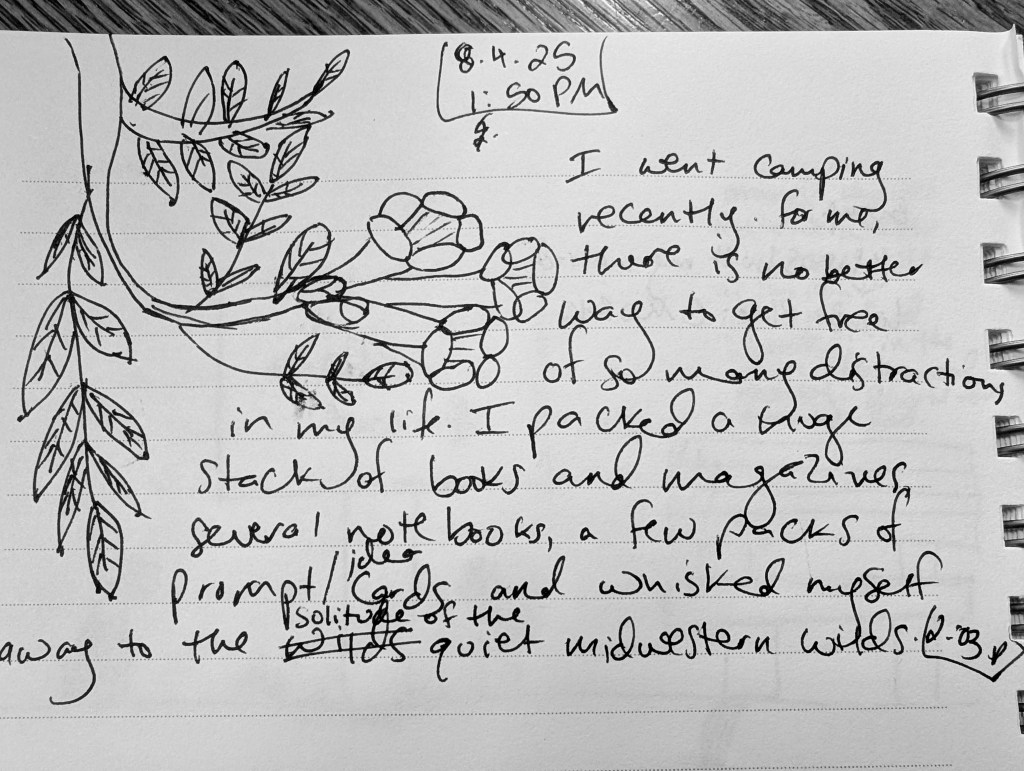 8.4.25
1:50 PM
I went camping
recently. for me,
there is no better
way to get free
of so many distractions
in my life. I packed a huge
stack of books and magazines,
several notebooks, a few packs of
idea
prompt/cards, and whisked myself
solitude of the
away to the wilds quiet midwestern wilds.